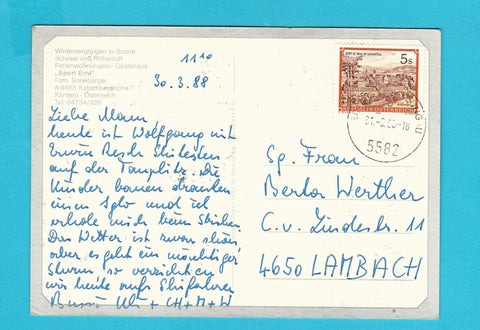 Wintervergnügen in Sonne
Schnee und Höhenluft
Ferienwohnungen - Gästehaus
„Sport Erni"
Fam. Sonnberger
A-9863 Katschberghöhe
Kärnten - Österreich
Tel. 04734/320
11¹⁰
30.3.88
Liebe Mam
heute ist Wolfgang mit
auf der Tauplitz. Die
Kinder bauen draußen
einen Iglo und ich
erhole mich beim
Das Wetter ist zwar schön
aber es geht ein mächtiger
Sturm so verzichten
wir heute aufs Skifahren
Bussi Uli + CH + M + W
5 S
REPUBLIK ÖSTERREICH
5582
Sg. Frau
Berta Werther
C. v. Lindestr. 11
4650 LAMBACH